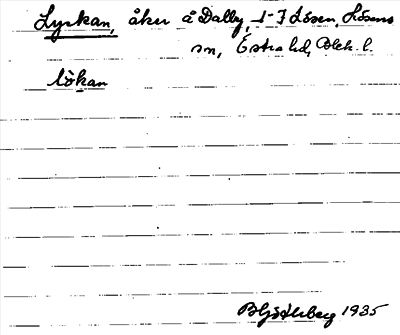 Lyckan, åker å Dalby, 1-7 Lösen, Lösens
sn, Östra hd, Blek. l.
lökan
1935